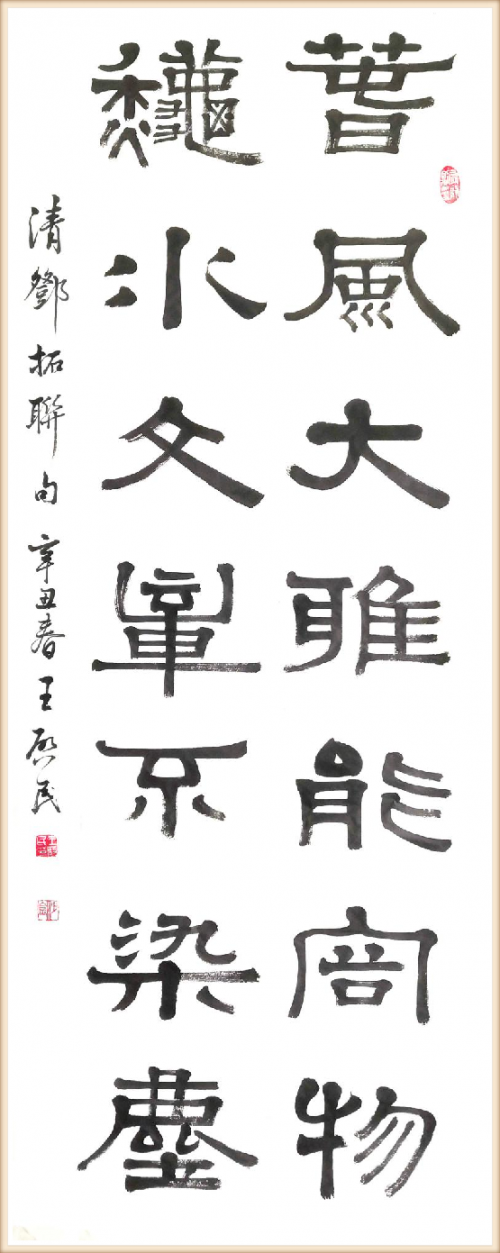 萅風大雅能容物
龝水文章不染塵
清鄧拓聯句辛丑春王啟民